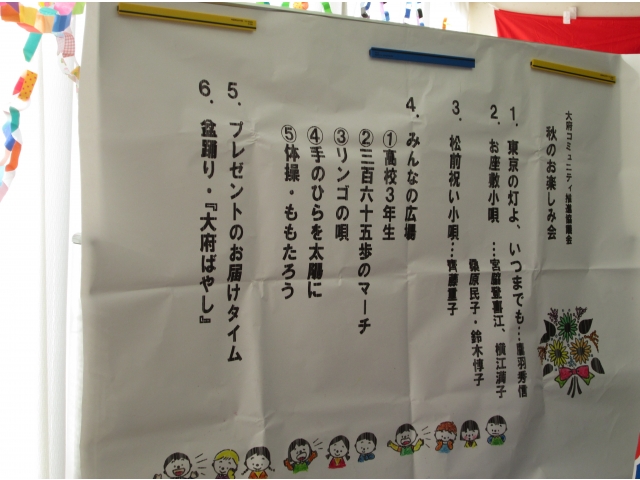 大府コミュニティ推進協議会
秋のお楽しみ会
1．東京の灯よ、いつまでも…鷹羽秀信
2．お座敷小唄…宮脇登喜江、横江満子
桑原民子・鈴木惇子
3．松前祝い小唄…齊藤重子
4．みんなの広場
①高校3年生
②三百六十五歩のマーチ
③リンゴの唄
④手のひらを太陽に
⑤体操・ももたろう
5．プレゼントのお届けタイム
6．盆踊り・『大府ばやし』